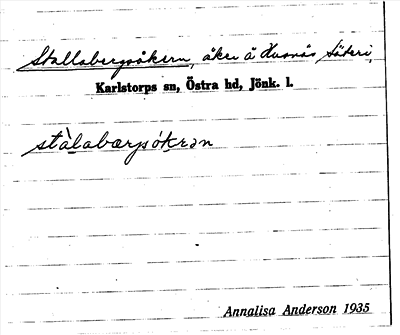 Stallabergsåkern, åker å Husnäs säteri,
Karlstorps sn, Östra hd, Jönk. l.
stàlabærjsókrən
Annalisa Anderson 1935